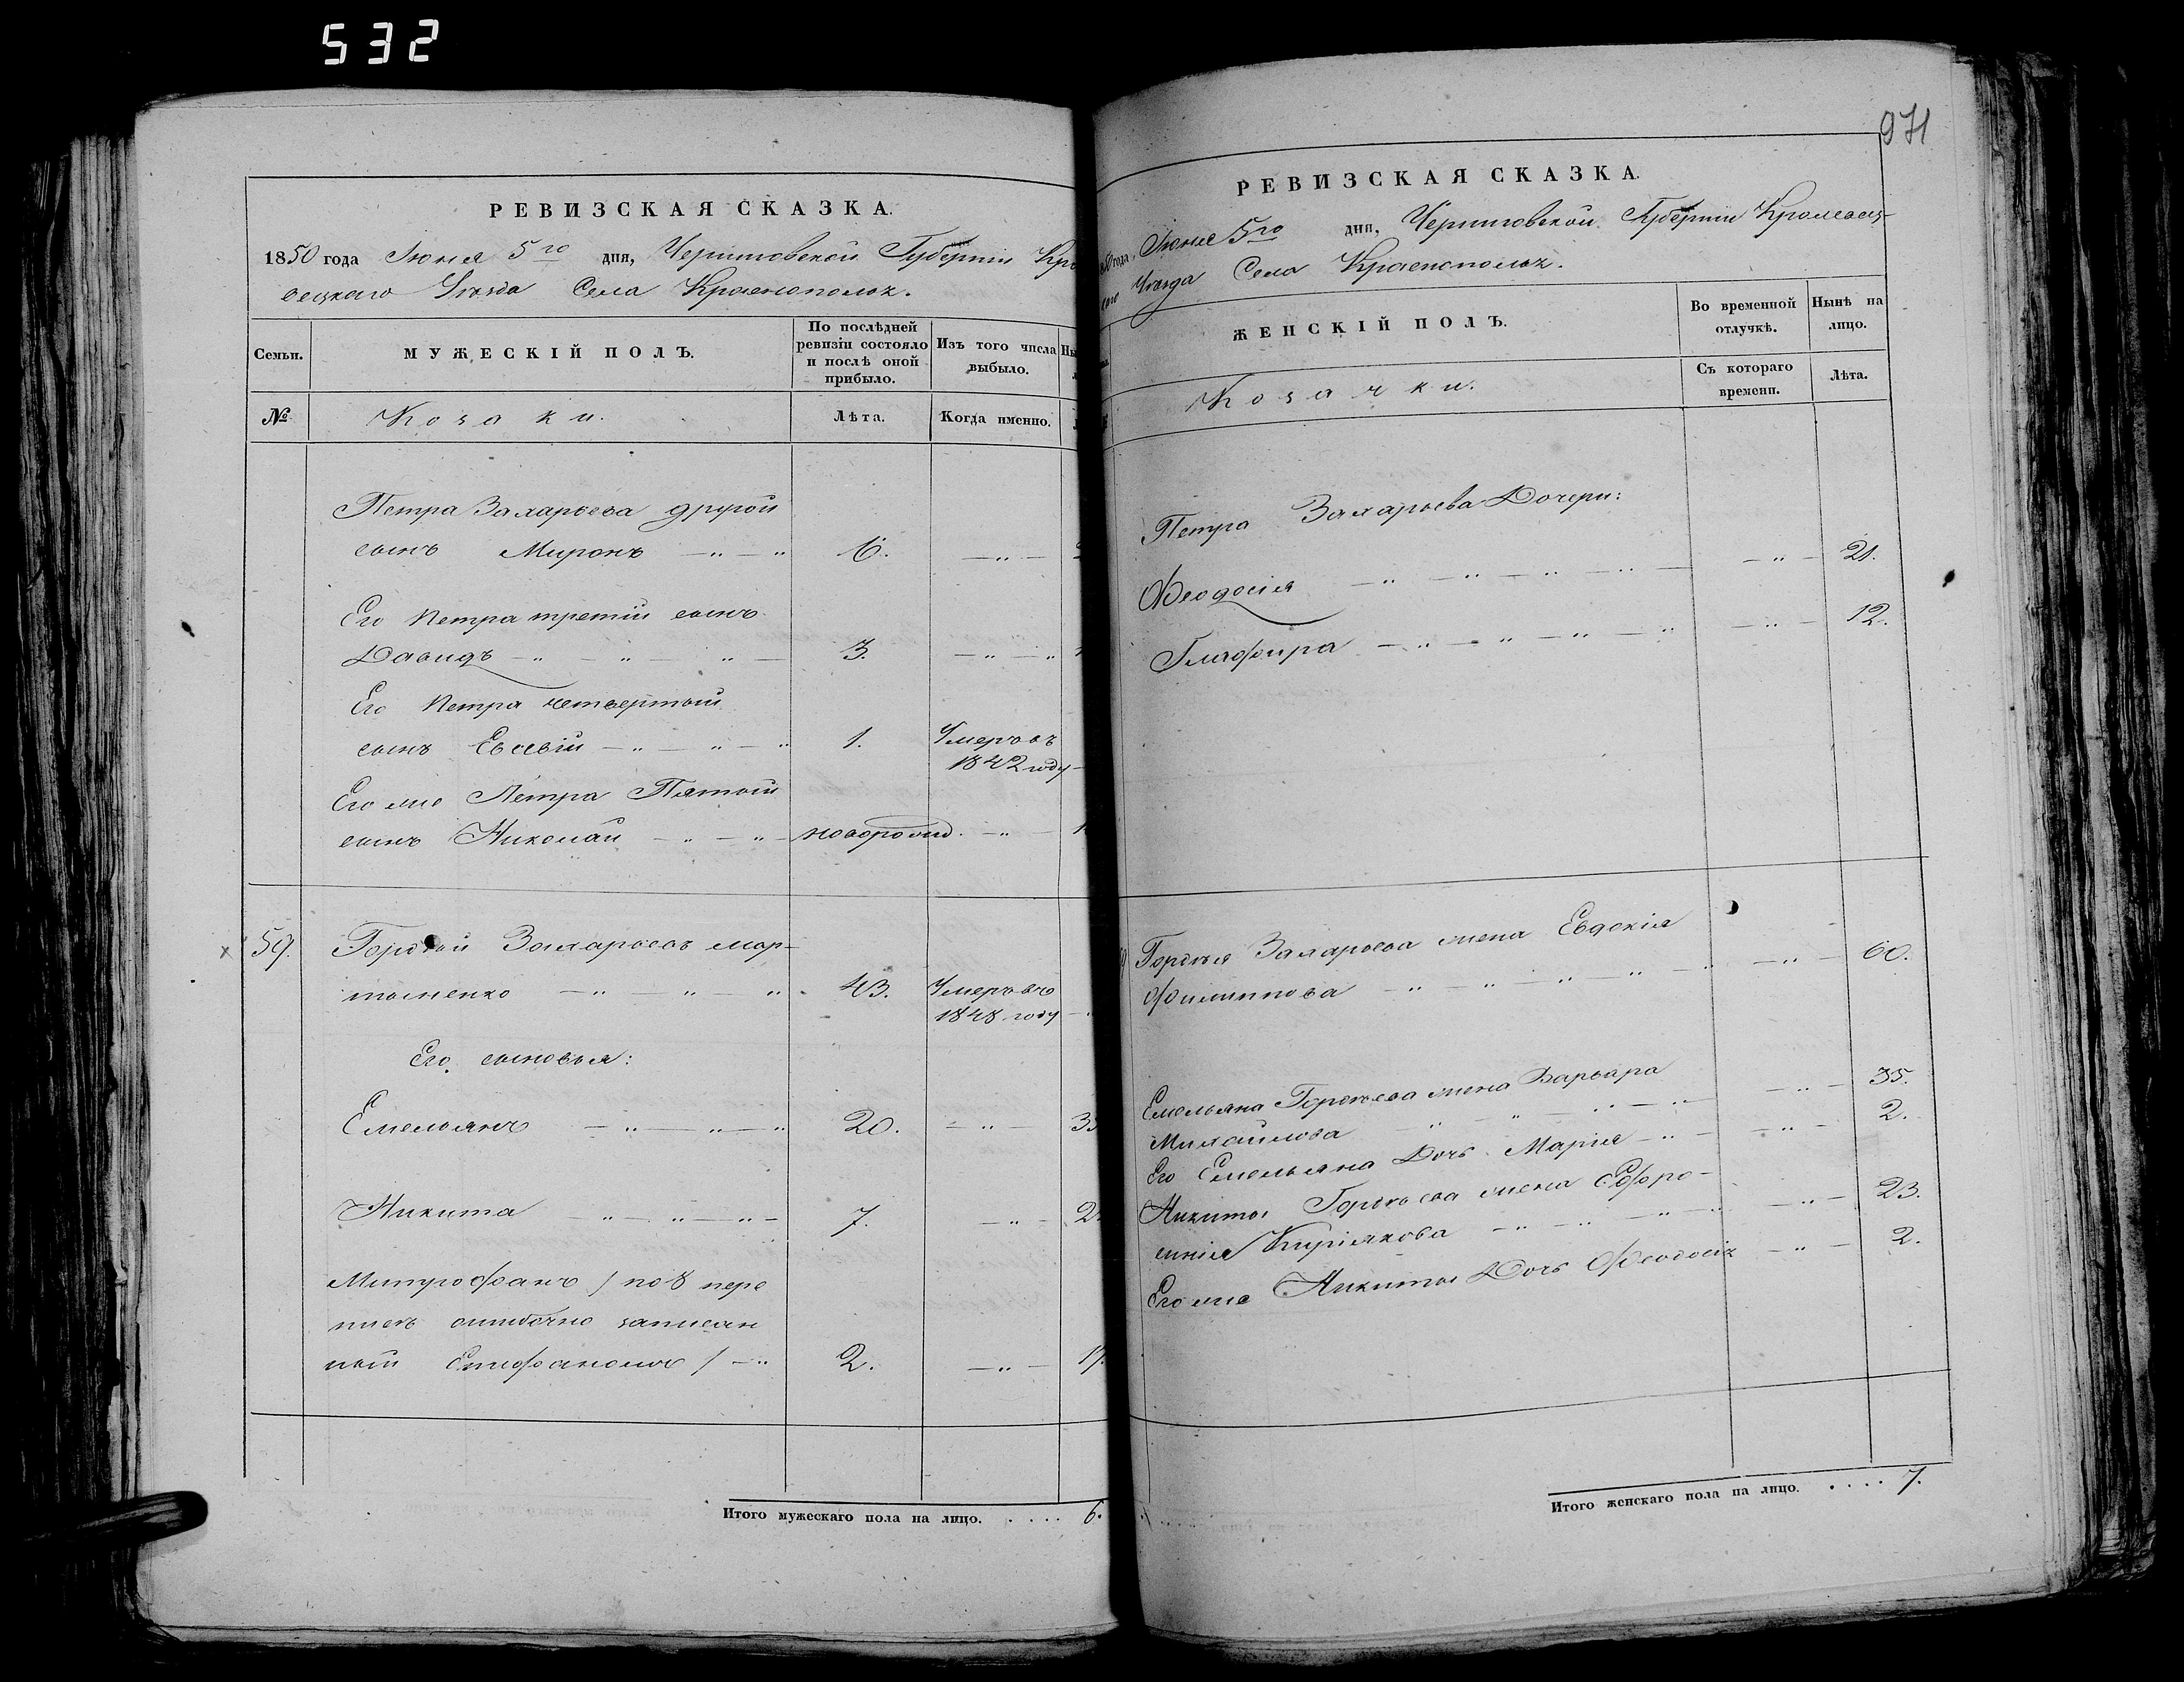 532
РЕВИЗСКАЯ СКАЗКА.
1850 года Июня 5го дня, Черниговской Губерніи Кро
вецкаго Уезда Села Краснополья.
Семьи.
МУЖЕСКІЙ ПОЛЪ.
По послѣдней ревизіи состояло и послѣ оной прибыло.
Изъ того числа выбыло.
№
Козаки.
Лѣта.
Когда именно.
Петра Захарьева другой
сынъ Миронъ 6.
Его Петра третій сынъ
Давидъ 3.
Его Петра четвертый
сынъ Евсевій 1. Умеръ въ
1842 году
Его же Петра Пятый
сынъ Николай новорожд.
59. Гордѣй Захарьевъ мар-
тыненко 43. Умеръ въ
1848 году
Его сыновья:
Емельянъ 20.
Никита 7.
Митрофанъ / по 8 пере
писѣ ошибочно записан
ный Епифаномъ / 2.
Итого мужескаго пола на лицо. . . . . 6.
971
РЕВИЗСКАЯ СКАЗКА.
года Июня 5го дня, Черниговской Губерніи Кролевец-
каго Уезда Села Краснополья.
ЖЕНСКІЙ ПОЛЪ.
Во временной отлучкѣ.
Нынѣ на лицо.
Козачки.
Съ котораго времени.
Лѣта.
Петра Захарьева Дочери:
Феодосія 21.
Глафира 12.
Гордѣя Захарьева жена Евдокія
Филиппова 60.
Емельяна Гордѣева жена Варвара
Михайлова 35.
Его Емельяна Дочь Марія 2.
Никиты Гордѣева жена Ефро-
синія Киріякова 23.
Его же Никиты Дочь Феодосія 2.
Итого женскаго пола на лицо. . . . . 7.